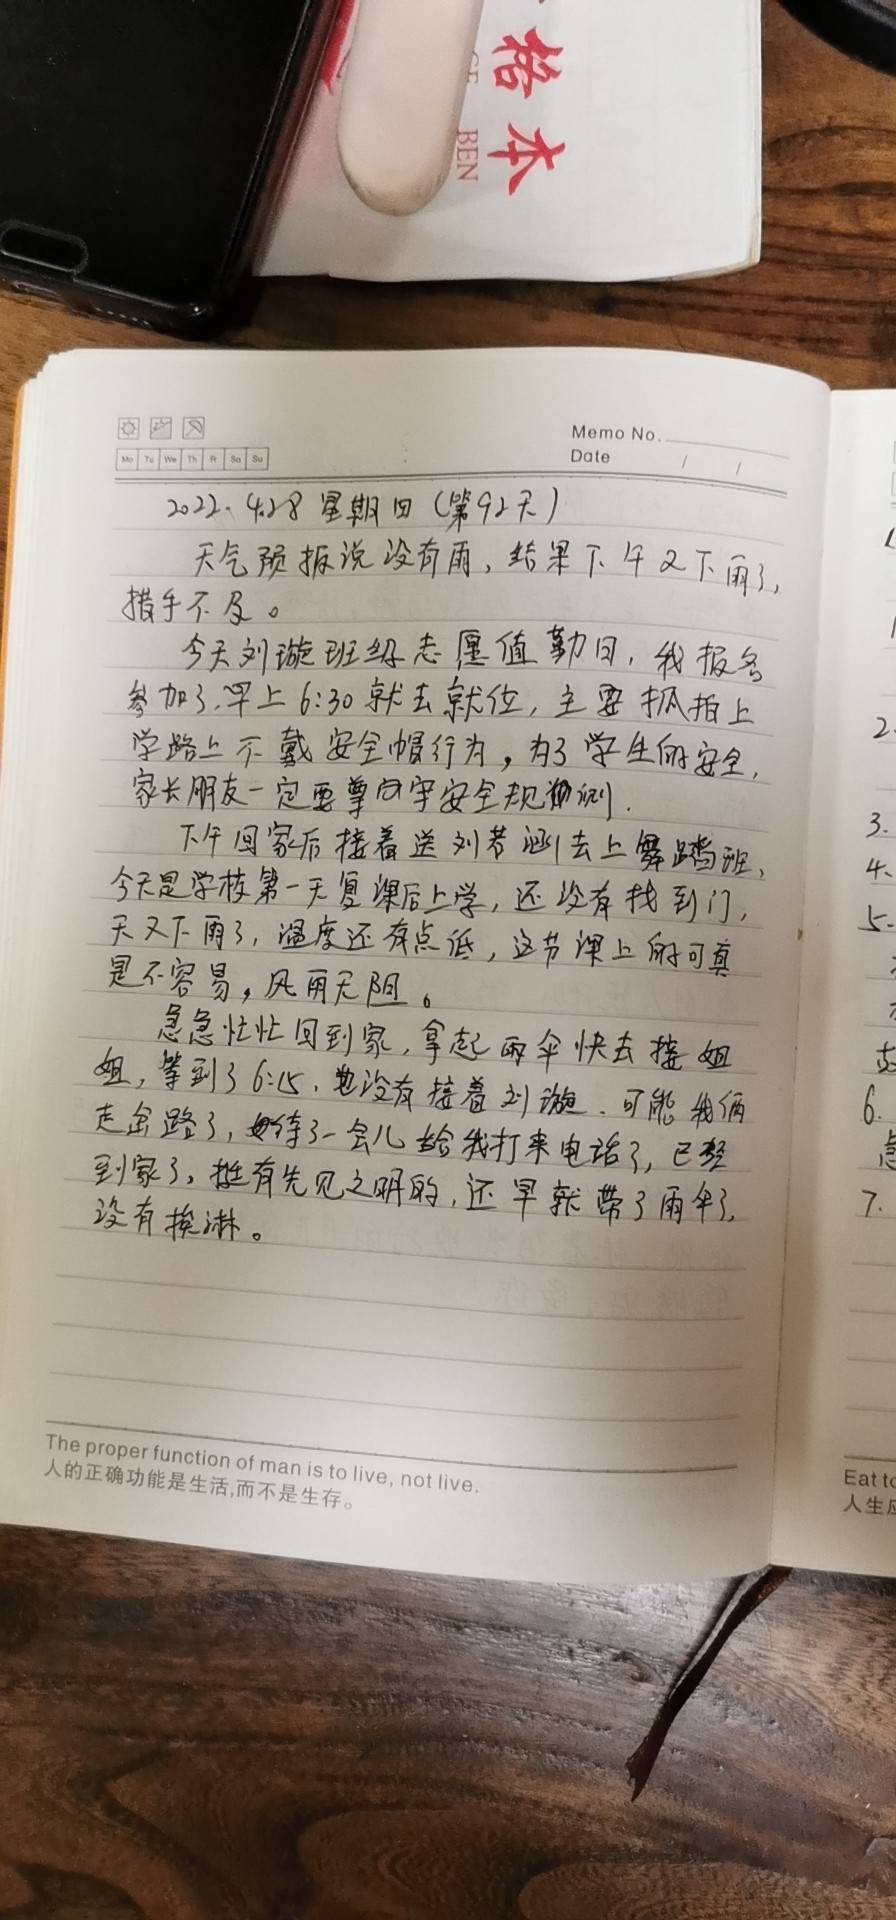 格
本
GE
BEN
Memo No.
Date / /
Mo Tu We Th Fr Sa Su
2022.4.28 星期四（第92天）
天气预报说没有雨，结果下午又下雨了，
措手不及。
今天刘璇班级志愿值勤日，我报名
参加了，早上6:30就去就位，主要抓拍上
学路上不戴安全帽行为，为了学生的安全，
家长朋友一定要尊守安全规则．
下午回家后接着送刘若涵去上舞蹈班，
今天是学校第一天复课后上学，还没有找到门，
天又下雨了，温度还有点低，这节课上的可真
是不容易，风雨无阻。
急急忙忙回到家，拿起雨伞快去接姐
姐，等到了6:15，也没有接着刘璇．可能我俩
走岔路了，等了一会儿给我打来电话了，已经
到家了，挺有先见之明的，还早就带了雨伞了，
没有挨淋。
The proper function of man is to live, not live.
人的正确功能是生活,而不是生存。
2.
3.
4.
5.
6.
急
7.
Eat to
人生应